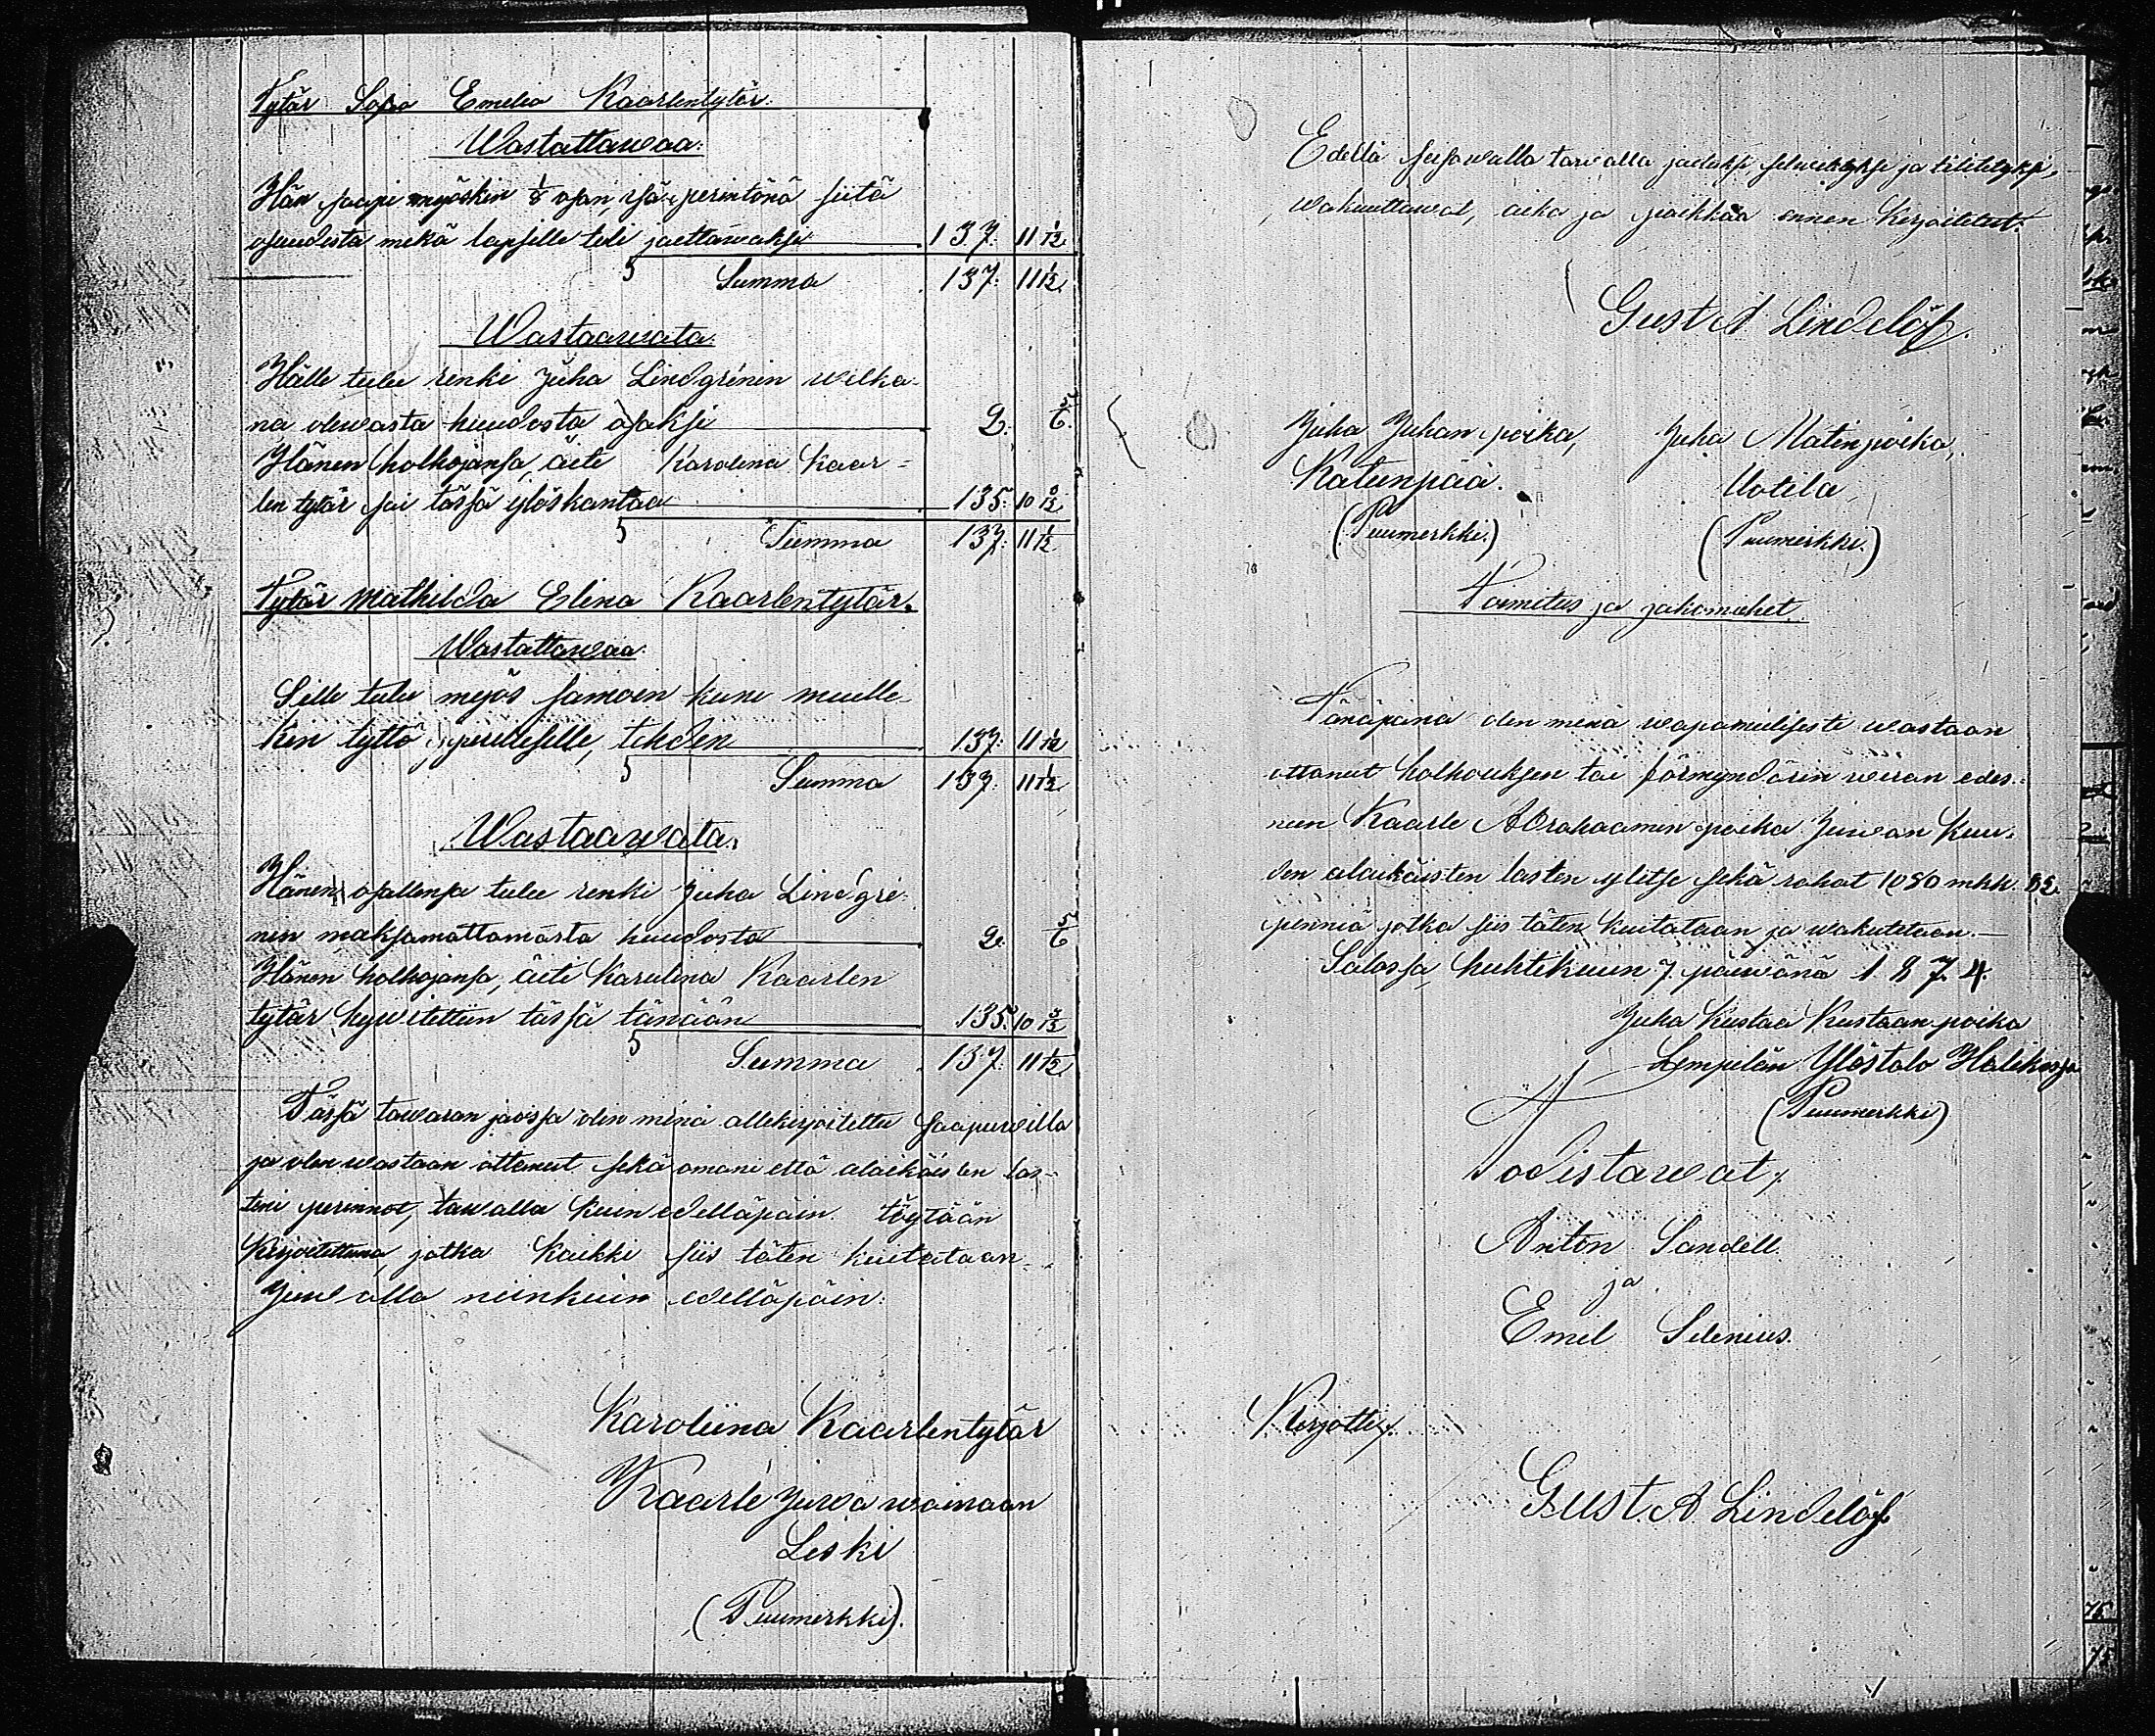 Tytär Sofia Emelia Kaarlentytär.
Wastattawaa.
Hän saapi myöskin 1/8 osan, isä-perintönä siitä
osuudesta mikä lapsille tuli jaettawaksi 137. 11 1/12
5 Summa 137. 11 1/12
Wastaawata.
Hälle tulee renki Juha Lindgrénin welka-
na olewasta huudosta osaksi 2. 5/6.
Hänen holhojansa, äiti Karolina Kaar-
len tytär sai tässä ylöskantaa 135. 10 3/12
5 Summa 137. 11 1/12
Tytär Mathilda Elina Kaarlentytär.
Wastattawaa.
Sille tulee myös samoin kuin muille-
kin tyttö perillisille, tehden 137. 11 1/12
5 Summa 137. 11 1/12
Wastaawata.
Hänen osallensa tulee renki Juha Lindgré-
nin maksamattomasta huudosta 2. 5/6
Hänen holhojansa, äiti Karolina Kaarlen
tytär hywitettiin tässä tänään 135. 10 3/12
5 Summa 137. 11 1/12
Tässä tawaran jaossa olen minä allekirjoitettu saapuwilla
ja olen wastaan ottanut sekä omani että alaikäisten las-
teni perinnöt, tawalla kuin edelläpäin töytään
Kirjoitettuna, jotka kaikki siis täten kuitataan.
Juwalla niinkuin edelläpäin.
Karoliina Kaarlentytär
Kaarle Juwa wainaan
Leski
(Puumerkki).
Edellä seisowalla tawalla jaetuksi, selwitetyksi ja tilitetyksi,
wakuuttawat, aika ja paikka ennen kirjoitetut.
Gust A Lindelöf.
Juha Juhan poika, Juha Matinpoika,
Katinpää. Uotila
(Puumerkki.) (Puumerkki.)
Toimitus ja jakomiehet.
Tänäpänä olen minä wapamielisesti wastaan
ottanut holhouksen tai förmyndärin wiran edes-
neen Kaarle Abrahaamin poika Juwan kuu-
den alaikäisten lasten ylitse sekä rahat 1080 mkk. 82
penniä jotka siis täten kuitataan ja wakutetaan.—
Salossa, huhtikuun 7 päiwänä 1874.
Juha Kustaa Kustaanpoika
Lempilän Ylöstalo Halikossa
(Puumerkki)
Todistawat,
Anton Sandell.
ja
Emil Selenius.
Kirjotti,
Gust. A. Lindelöf